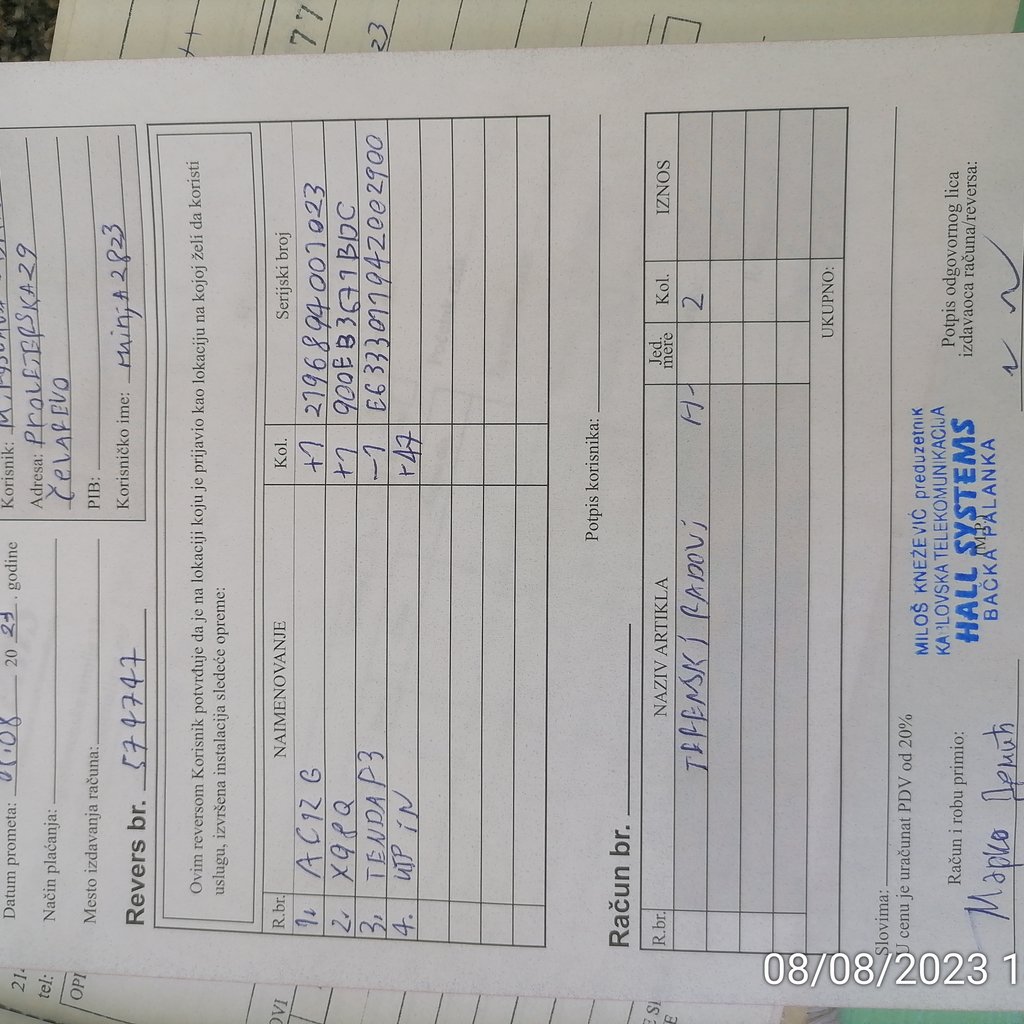 Datum prometa: 01.08 2023. godine
Način plaćanja:
Mesto izdavanja računa:
Korisnik:
Adresa: PROLETERSKA 29
ČELAREVO
PIB:
Korisničko ime: minja2823
Revers br. 574747
Ovim reversom Korisnik potvrđuje da je na lokaciji koju je prijavio kao lokaciju na kojoj želi da koristi
uslugu, izvršena instalacija sledeće opreme:
R.br. NAIMENOVANJE Kol. Serijski broj
1. AC12 G +1 2196894001023
2. X9PQ +1 900EB3671BDC
3. TENDA P3 -1 E6333011942002900
4. UTP IN +47
Potpis korisnika:
Račun br.
R.br. NAZIV ARTIKLA Jed. mere Kol. IZNOS
TERENSKI RADOVI H- 2
UKUPNO:
Slovima:
U cenu je uračunat PDV od 20%
Račun i robu primio:
Марко
M.P.
MILOŠ KNEŽEVIĆ preduzetnik
KARLOVSKA TELEKOMUNIKACIJA
HALL SYSTEMS
BAČKA PALANKA
Potpis odgovornog lica
izdavaoca računa/reversa:
tel:
OPI
77
23
08/08/2023 1